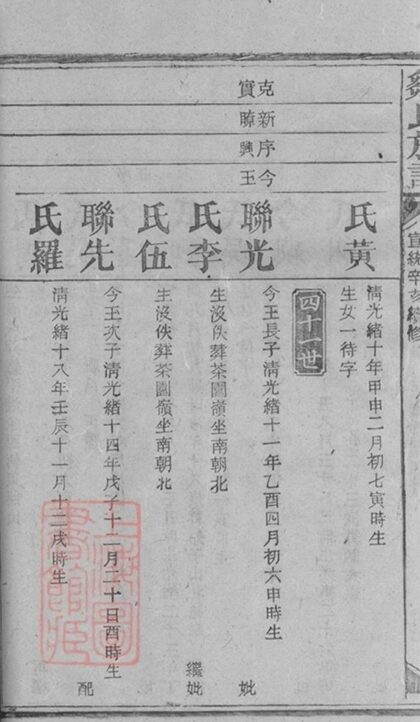 氏族譜
宣統辛亥續修
氏黃
清光緒十年甲申二月初七寅時生
生女一待字
四十一世
克實
新暸
序興
今王
聯光
今王長子清光緒十一年乙酉四月初六申時生
妣
氏李
生沒佚葬茶園嶺坐南朝北
繼妣
氏伍
生沒佚葬茶園嶺坐南朝北
聯先
今王次子清光緒十四年戊子十二月二十日酉時生
配
氏羅
清光緒十八年壬辰十一月十二戌時生
上海圖
書館藏